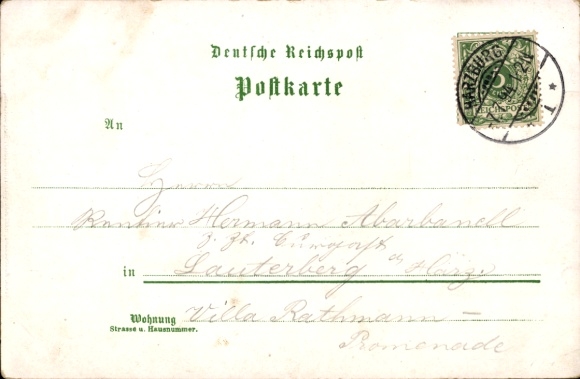 Deutsche Reichspost
Postkarte
HARZBURG
An
Herrn
Rentier Hermann Abarbanell
z. Zt. Curgast
in Lauterberg a/ Harz.
Wohnung Villa Rathmann –
Strasse u. Hausnummer.
Promenade